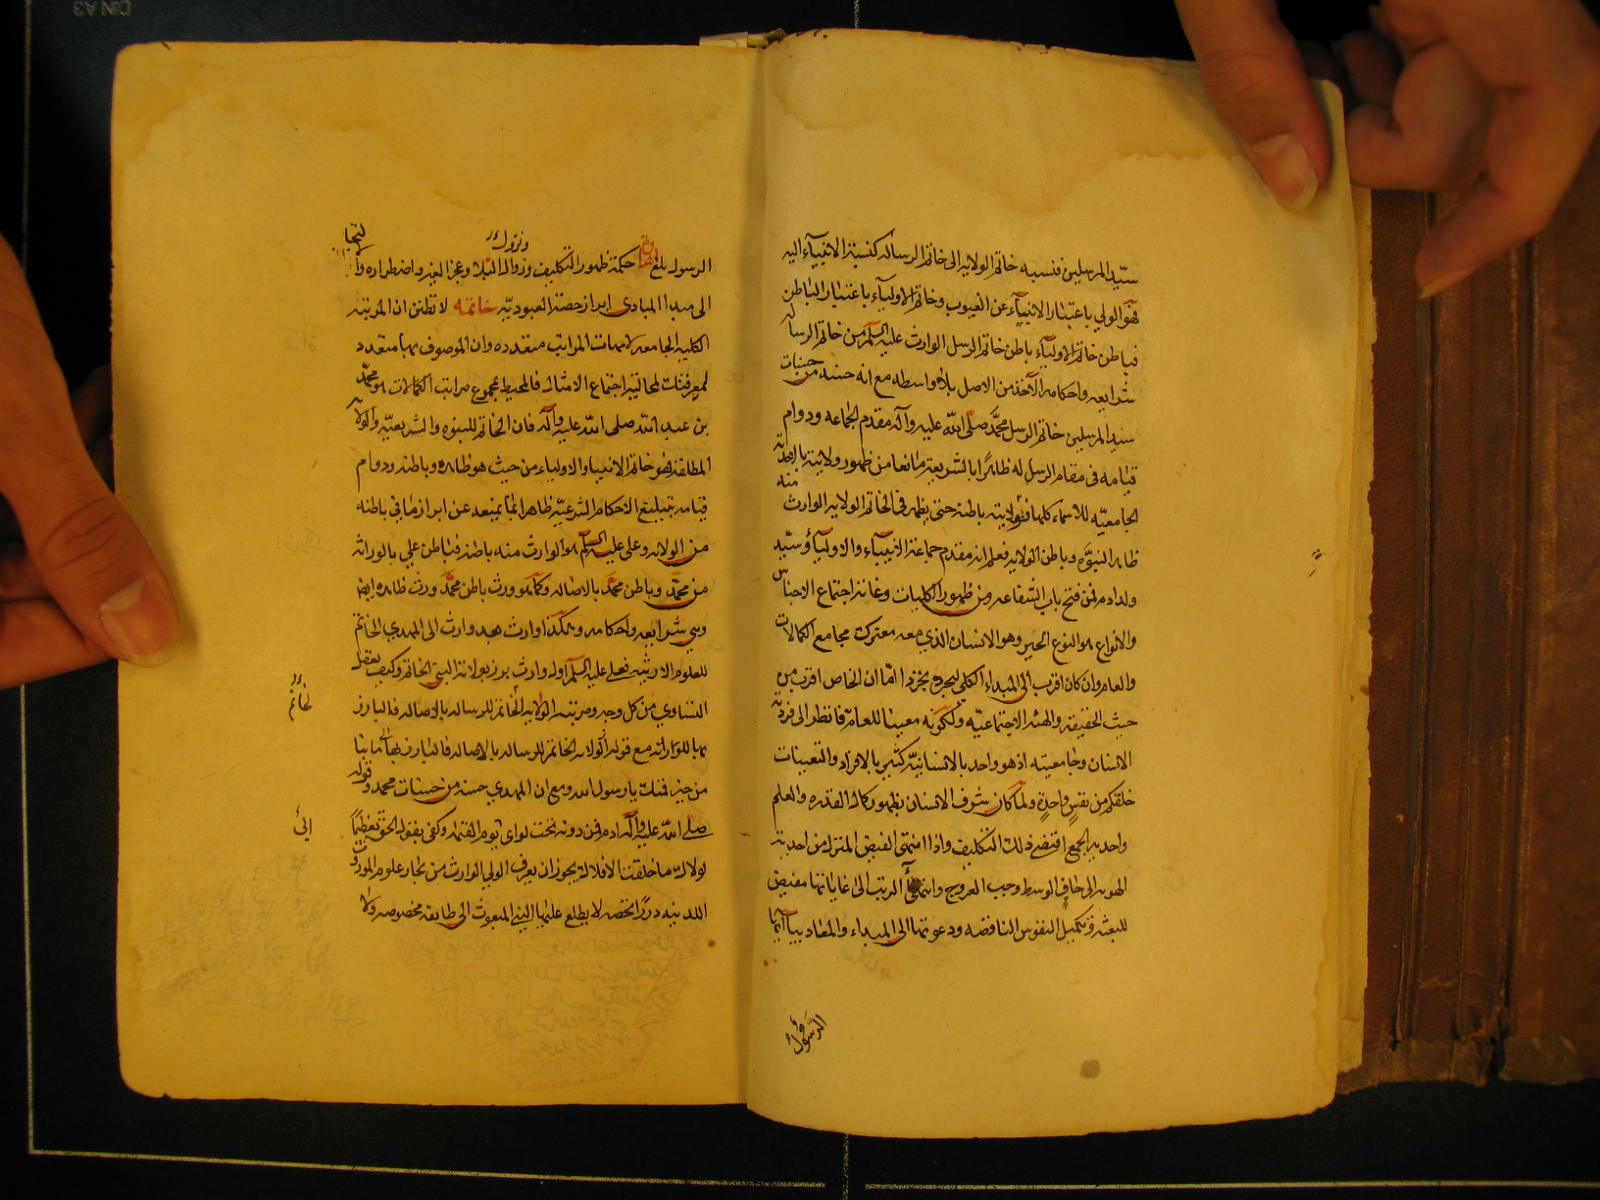 سيّد المرسلين فنسبه خاتم الولايه الى خاتم الرساله كنسبة الانبيآء اليه
فهو الولي باعتبار الانبيآء عن الغيوب وخاتم الاوليآء باعتبار الباطن
فباطن خاتم الاوليآء باطن خاتم الرسل الوارث عليه السلم من خاتم الرساله
شرايعه واحكامه الآخذ من الاصل بلا واسطه مع انه حسنه من حسنات
سيد المرسلين خاتم الرسل محمّد صلّى الله عليه وآله مقدم الجماعه ودوام
قيامه فى مقام الرسل له ظاهرًا بالشريعة مانعا من ظهور ولايته بالاحدية
الجامعيّه للاسماء كلها فولايته باطنة حتى يظهر فى الخاتم الولايه الوارث منه
ظاهر النبوّه وباطن الولايه فعلم انه مقدم جماعة الانبيآء والاوليآء وسيّد
ولد ادم فمن فتح باب الشفاعه ومن ظهور الكليات وغاية اجتماع الاجناس
والانواع هو النوع الاخير وهو الانسان الذي معه معترك مجامع الكمالات
والعام وان كان اقرب الى المبداء الكلى ليجرده الّا ان الخاص اقرب من
حيث الحقيقه والهيئه الاجتماعيّه ولكونه معينا للعام فانظر الى فردية
الانسان وجامعيته اذ هو واحد بالانسانيّه كثير بالافراد والتعينات
خلقكم من نفسٍ واحدةٍ ولما كان شرف الانسان بظهور كمال القدره والعلم
واحديه الجمع اقتضى ذلك التكليف واذا انتهى الفيض المتنزل من احدية
الهويه الى حاق الوسط وجب العروج وانتهآء الرتب الى غاياتها مفيض
للبعثه وتكميل النفوس الناقصه ودعوتها الى المبداء والمعاد بيا ايها
الرّسول
الرسول بلّغ حكمة ظهور التكليف وزوال البلا وعجز العبد واضطراره
ونزول
الى مبدا المبادى ابراز حصة العبوديّه خاتمه لا تظنن ان المرتبه
الكليه الجامعه لامهات المراتب متعدده وان الموصوف بها متعدد
لمعرفتك استحالة اجتماع الامثال فالمحيط بمجموع مراتب الكمالات هو محمّد
بن عبد الله صلى الله عليه وآله فان الخاتم للنبوه والشريعيّه والولاية
المطلقة فهو خاتم الانبيا والاولياء من حيث هو ظاهره وباطنه ودوام
قيامه بتبليغ الاحكام الشرعيّه ظاهرا يمنعه عن ابراز ما في باطنه
من الولايه وعلى عليه السلم هو الوارث منه باطنه فباطن علي بالوراثه
من محمّد وباطن محمّد بالاصاله وكما هو ورث باطن محمّد ورث ظاهره ايضا
وهى شرايعه واحكامه وهكذا وارث بعد وارث الى المهدي الخاتم
للعلوم الارثيه فعلى عليه السلم اول وارث برز بولاية النبى الخاتم وكيف يعقل
التساوي من كل وجه ومرتبه الولايه الخاتم للرساله بالاصاله فالبارز
بها بالوراثه مع قوله الخاتم للرساله بالاصاله فالبارز
لخاتم
من خير قبلك يا رسول الله ومع ان المهدي حسنه من حسنات محمد وقوله
صلّى الله عليه وآله ادم فمن دونه تحت لواي يوم القيمه وكفى بقول الحق تعظيمًا
لولاك ما خلقت الافلاك يجوز ان يغرف الولي الوارث من بحار علوم الموروث
اللدنيه دررًا تخصه لا يطلع عليها النبي المبعوث الى طايفه مخصوصه ولا